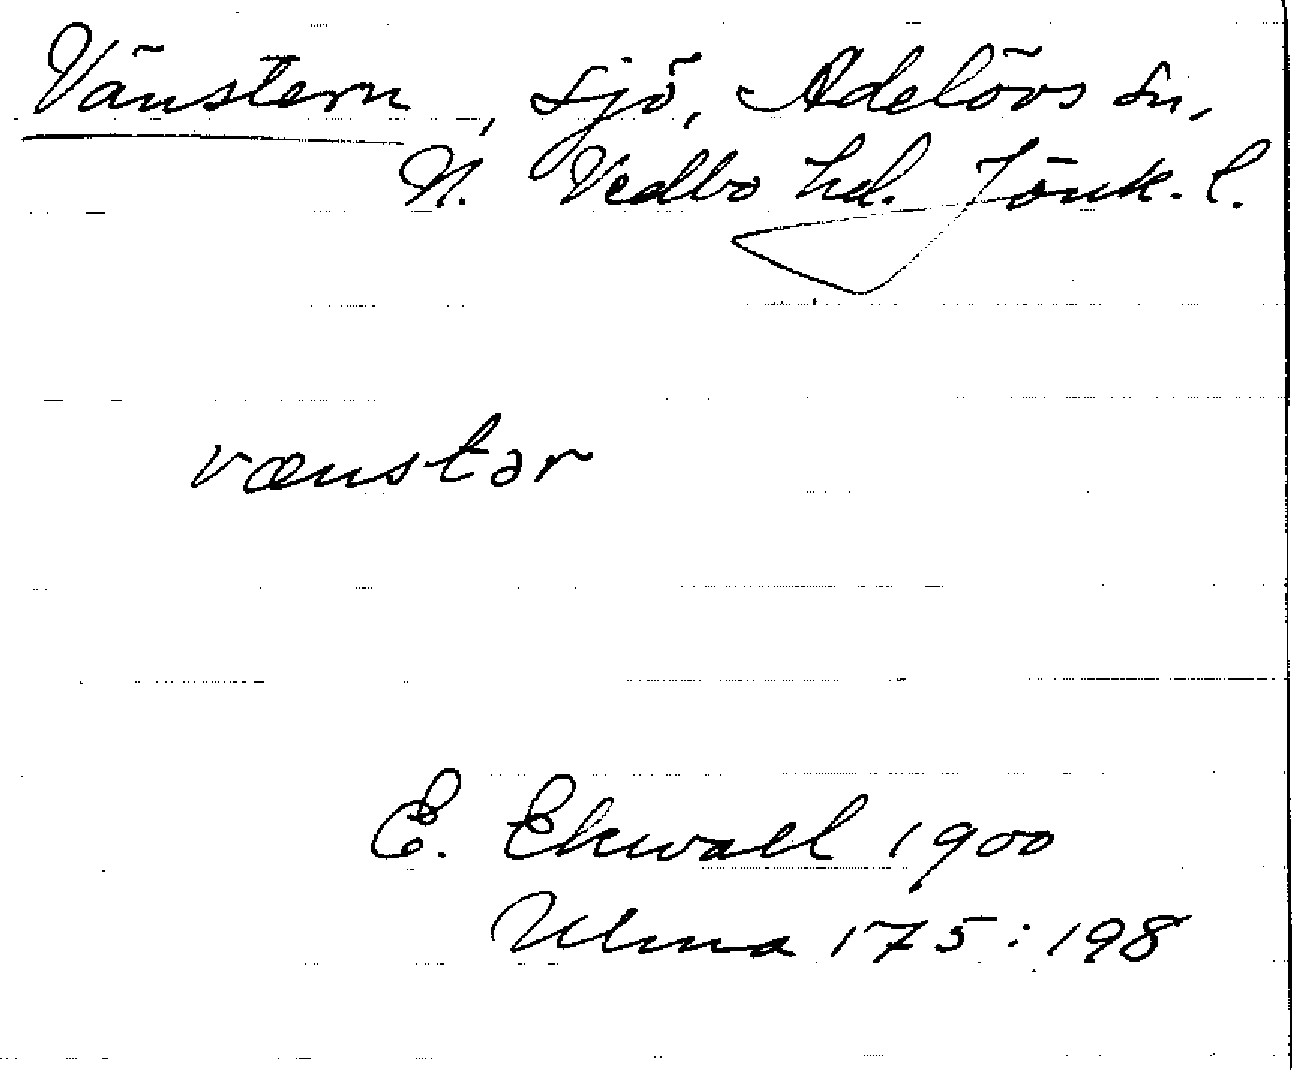 Vänstern, sjö, Adelövs sn,
N. Vedbo hd. Jönk. l.
vænstər
E. Ekwall 1900
Ulma 175:198